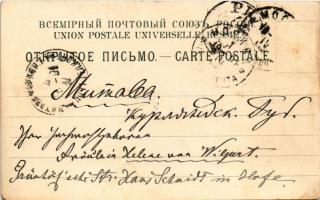 ВСЕМІРНЫЙ ПОЧТОВЫЙ СОЮЗЪ. РОССІЯ
UNION POSTALE UNIVERSELLE. RUSSIE
ОТКРЫТОЕ ПИСЬМО. — CARTE POSTALE
Митава.
Курляндск. Губ.
Ihrer Hochwohlgeboren
Fräulein Helene von Wilpert.
Str. Haus Schmidt im Hofe.